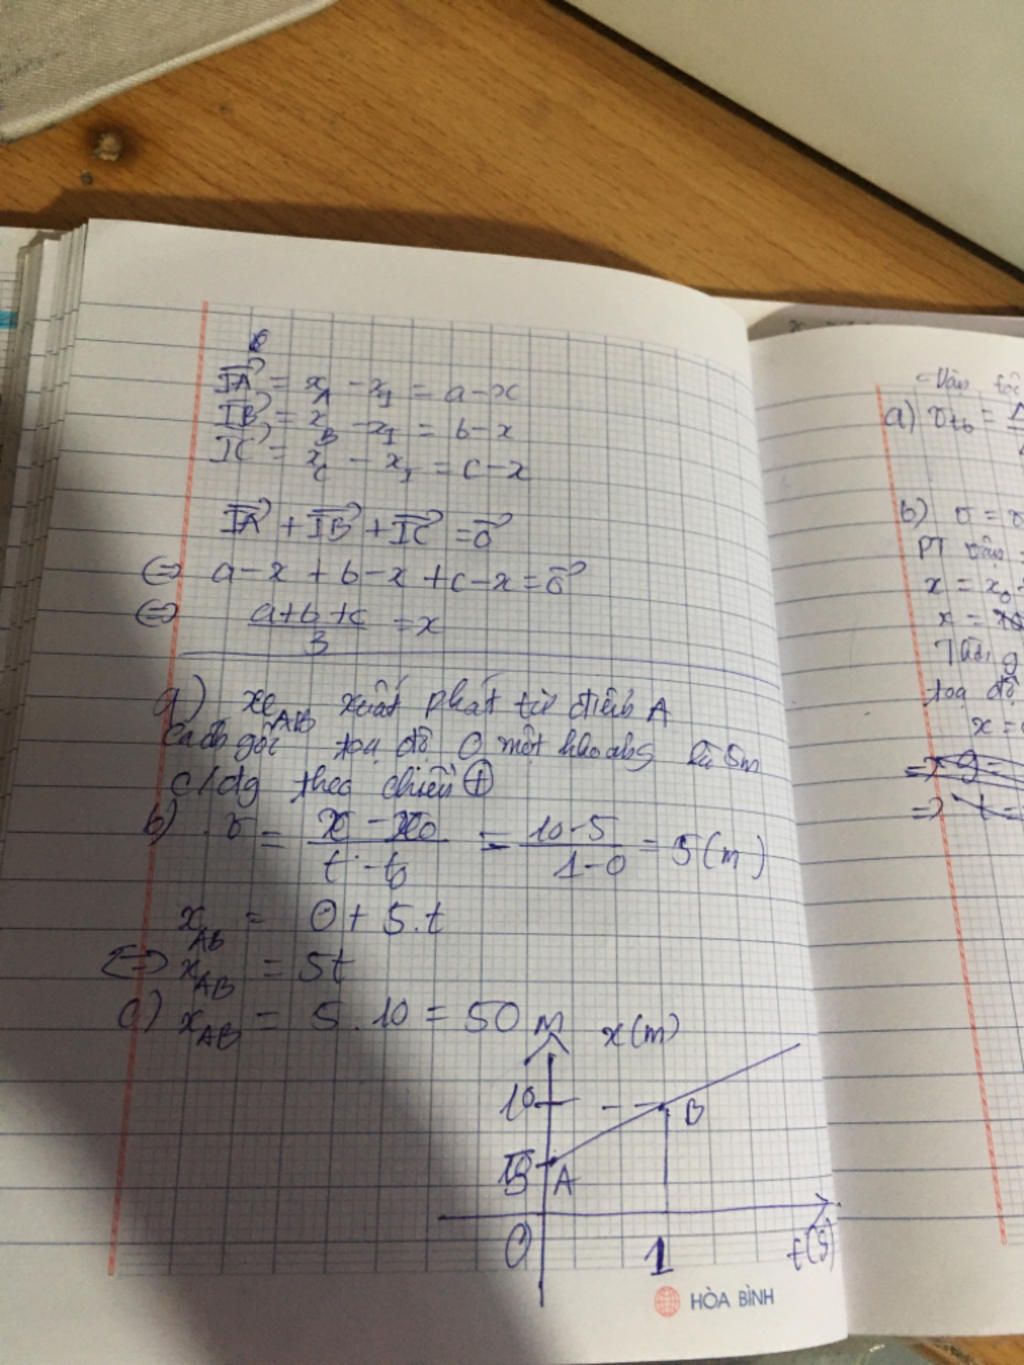 IA = x_A - x_I = a - x
IB = x_B - x_I = b - x
IC = x_C - x_I = c - x
IA + IB + IC = 0
<=> a - x + b - x + c - x = 0
<=> (a+b+c)/3 = x
a) xe AB xuất phát từ điểm A
cách gốc toạ độ O một khoảng là 5m
c/đg theo chiều (+)
b) v = (x - x0)/(t - t0) = (10-5)/(1-0) = 5(m)
x_AB = 0 + 5.t
<=> x_AB = 5t
c) x_AB = 5.10 = 50 m
x(m)
10
B
5
A
O
1
t(s)
HÒA BÌNH
- Vận tốc
a) v_tb =
b) v =
PT
x = x0
x =
toạ độ
x =
=>
=> t =